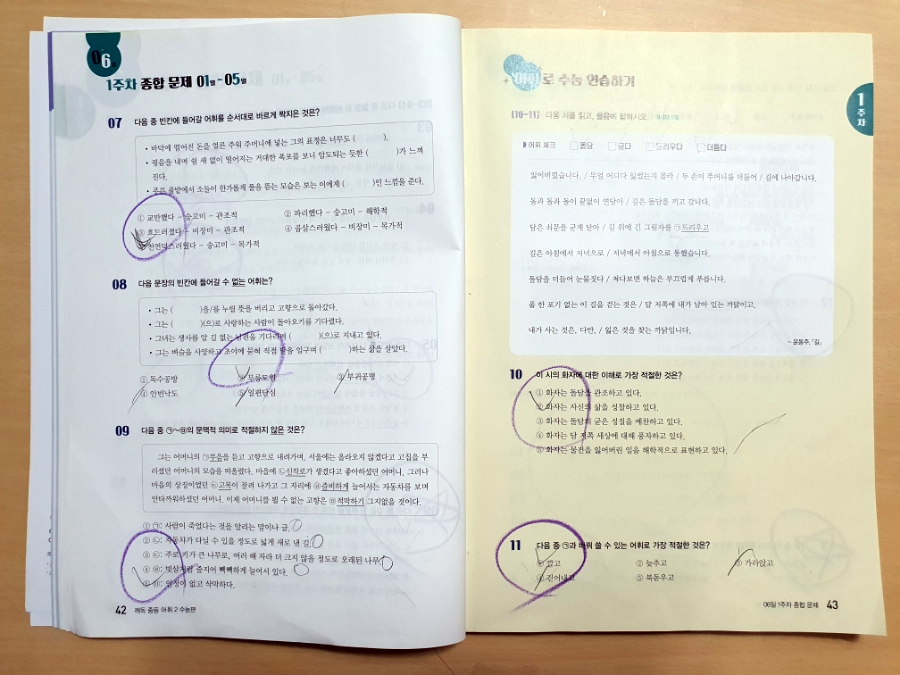 06일
1주차 종합 문제 01일~05일
07 다음 중 빈칸에 들어갈 어휘를 순서대로 바르게 짝지은 것은?
• 바닥에 떨어진 돈을 얼른 주워 주머니에 넣는 그의 표정은 너무도 ( ).
• 굉음을 내며 쉴 새 없이 떨어지는 거대한 폭포를 보니 압도되는 듯한 ( )가 느껴
진다.
• 푸른 풀밭에서 소들이 한가롭게 풀을 뜯는 모습은 보는 이에게 ( )인 느낌을 준다.
① 교만했다 - 숭고미 - 관조적 ② 화려했다 - 숭고미 - 해학적
③ 흐드러졌다 - 비장미 - 관조적 ④ 곰살스러웠다 - 비장미 - 목가적
⑤ 천연덕스러웠다 - 숭고미 - 목가적
08 다음 문장의 빈칸에 들어갈 수 없는 어휘는?
• 그는 ( )을/를 누릴 뜻을 버리고 고향으로 돌아갔다.
• 그는 ( )(으)로 사랑하는 사람이 돌아오기를 기다렸다.
• 그녀는 생사를 알 길 없는 남편을 기다리며 ( )(으)로 지내고 있다.
• 그는 벼슬을 사양하고 초야에 묻혀 직접 밭을 일구며 ( )하는 삶을 살았다.
① 독수공방 ② 무릉도원 ③ 부귀공명
④ 안빈낙도 ⑤ 일편단심
09 다음 중 ㉠~㉤의 문맥적 의미로 적절하지 않은 것은?
그는 어머니의 ㉠부음을 듣고 고향으로 내려가며, 서울에는 올라오지 않겠다고 고집을 부
리셨던 어머니의 모습을 떠올렸다. 마을에 ㉡신작로가 생겼다고 좋아하셨던 어머니. 그러나
마을의 상징이었던 ㉢고목이 잘려 나가고 그 자리에 ㉣즐비하게 늘어서는 자동차를 보며
안타까워하셨던 어머니. 이제 어머니를 뵐 수 없는 고향은 ㉤적막하기 그지없을 것이다.
① ㉠: 사람이 죽었다는 것을 알리는 말이나 글.
② ㉡: 자동차가 다닐 수 있을 정도로 넓게 새로 낸 길.
③ ㉢: 주로 키가 큰 나무로, 여러 해 자라 더 크지 않을 정도로 오래된 나무.
④ ㉣: 빗살처럼 줄지어 빽빽하게 늘어서 있다.
⑤ ㉤: 인정이 없고 삭막하다.
42 깨독 중등 어휘 2 수능편
어휘로 수능 연습하기
1주차
[10~11] 다음 시를 읽고, 물음에 답하시오.
▶어휘 체크 돌담 긷다 드리우다 더듬다
잃어버렸습니다. / 무얼 어디다 잃었는지 몰라 / 두 손이 주머니를 더듬어 / 길에 나아갑니다.
돌과 돌과 돌이 끝없이 연달아 / 길은 돌담을 끼고 갑니다.
담은 쇠문을 굳게 닫아 / 길 위에 긴 그림자를 ㉠드리우고
길은 아침에서 저녁으로 / 저녁에서 아침으로 통했습니다.
돌담을 더듬어 눈물짓다 / 쳐다보면 하늘은 부끄럽게 푸릅니다.
풀 한 포기 없는 이 길을 걷는 것은 / 담 저쪽에 내가 남아 있는 까닭이고,
내가 사는 것은, 다만, / 잃은 것을 찾는 까닭입니다.
- 윤동주, 「길」
10 이 시의 화자에 대한 이해로 가장 적절한 것은?
① 화자는 돌담을 관조하고 있다.
② 화자는 자신의 삶을 성찰하고 있다.
③ 화자는 돌담의 굳은 성질을 예찬하고 있다.
④ 화자는 담 저쪽 세상에 대해 풍자하고 있다.
⑤ 화자는 물건을 잃어버린 일을 해학적으로 표현하고 있다.
11 다음 중 ㉠과 바꿔 쓸 수 있는 어휘로 가장 적절한 것은?
① 깔고 ② 늦추고 ③ 가라앉고
⑤ 북돋우고
06일 1주차 종합 문제 43